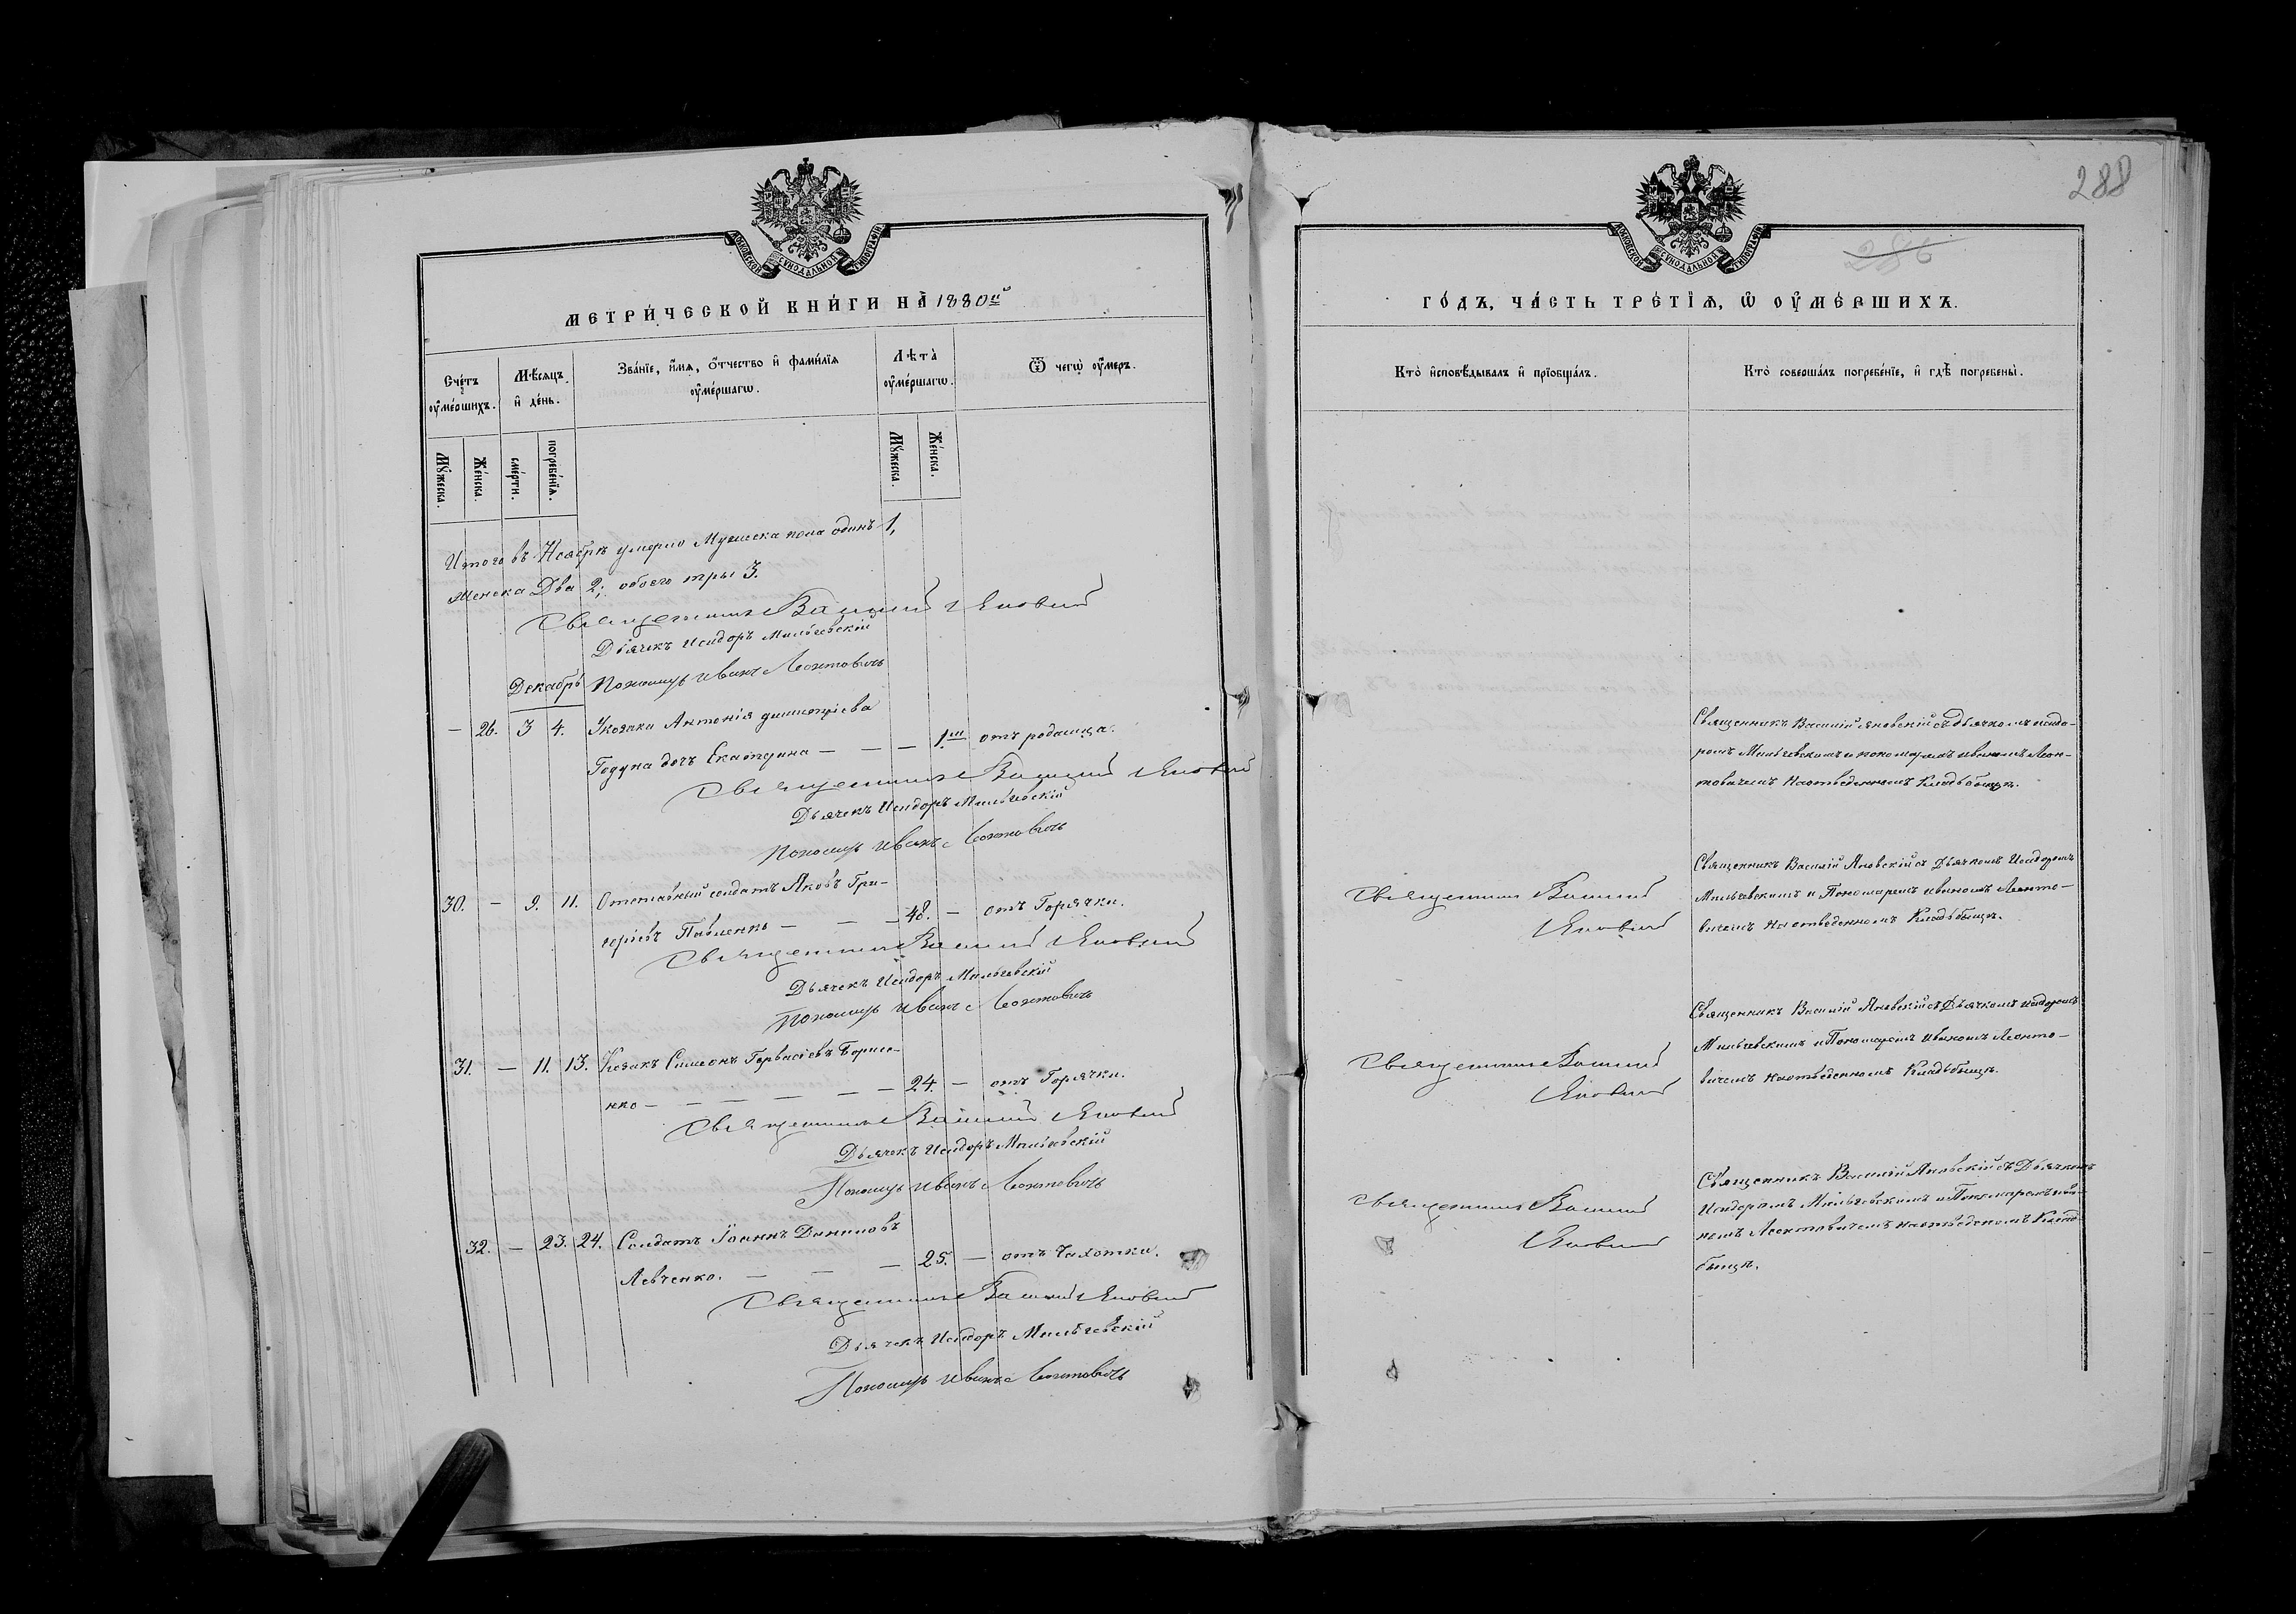 288
286
МОСКОВСКОЙ СѴНОДАЛЬНОЙ ТИПОГРАФІИ
МЕТРИ́ЧЕСКОЙ КНИ́ГИ НА̀ 1880й
Сче́тъ ᲂу҆ме́ршихъ.
Мѣ́сяцъ и҆ де́нь.
Зва́нїе, и҆́мя, ѻ҆́тчество и҆ фами́лїя ᲂу҆ме́ршагѡ.
Лѣта̀ ᲂу҆ме́ршагѡ.
Ѿ чегѡ̀ ᲂу҆́меръ.
Мꙋ́жеска.
Же́нска.
сме́рти.
погребе́нїя.
Мꙋ́жеска.
Же́нска.
Итого въ Ноябрѣ умерло Мужеска пола одинъ 1,
Женска Два 2; обоего тры 3.
Священникъ Василий Яновский
Дьячекъ Исидоръ Мильчевскій
Декабрь Пономарь Иванъ Леонтовичъ
— 26. 3 4. Козачки Антонія
дочь Екатерина — — — 1. отъ родимца.
Священникъ Василий Яновский
Дьячекъ Исидоръ Мильчевскій
Пономарь Иванъ Леонтовичъ
30. — 9. 11. Отставный солдатъ Яковъ Гри-
горіевъ Павленко — — — 48. — отъ Горячки.
Священникъ Василий Яновский
Дьячекъ Исидоръ Мильчевскій
Пономарь Иванъ Леонтовичъ
31. — 11. 13. Козакъ Симеонъ Гервасіевъ Борисе-
нко — — — — — — 24. — отъ Горячки.
Священникъ Василий Яновский
Дьячекъ Исидоръ Мильчевскій
Пономарь Иванъ Леонтовичъ
32. — 23. 24. Солдатъ Іоаннъ Даниловъ
Левченко. — — — 25. — отъ Чахотки.
Священникъ Василий Яновский
Дьячекъ Исидоръ Мильчевскій
Пономарь Иванъ Леонтовичъ
МОСКОВСКОЙ СѴНОДАЛЬНОЙ ТИПОГРАФІИ
ГО́ДЪ, ЧА́СТЬ ТРЕ́ТЇЯ, Ѡ҆ ОУ҆МЕ́РШИХЪ.
Кто̀ и҆сповѣ́дывалъ и҆ прїѡбща́лъ.
Кто̀ соверша́лъ погребе́нїе, и҆ гдѣ̀ погребены̀.
Священникъ Василій Яновскій съ Дьячкомъ Исидо-
ромъ Мильчевскимъ и пономаремъ Иваномъ Леон-
товичемъ На отведенномъ Кладьбыще.
Священникъ Василий
Яновский
Священникъ Василій Яновскій съ Дьячкомъ Исидоромъ
Мильчевскимъ и Пономаремъ Иваномъ Леонто-
вичемъ На отведенномъ Кладьбыще.
Священникъ Василий
Яновский
Священникъ Василій Яновскій съ Дьячкомъ Исидоромъ
Мильчевскимъ и Пономаремъ Иваномъ Леонто-
вичемъ на отведенномъ Кладьбыще.
Священникъ Василий
Яновский
Священникъ Василій Яновскій съ Дьячкомъ
Исидоромъ Мильчевскимъ и Пономаремъ Ива-
номъ Леонтовичемъ на отведеномъ Кладь
быще.